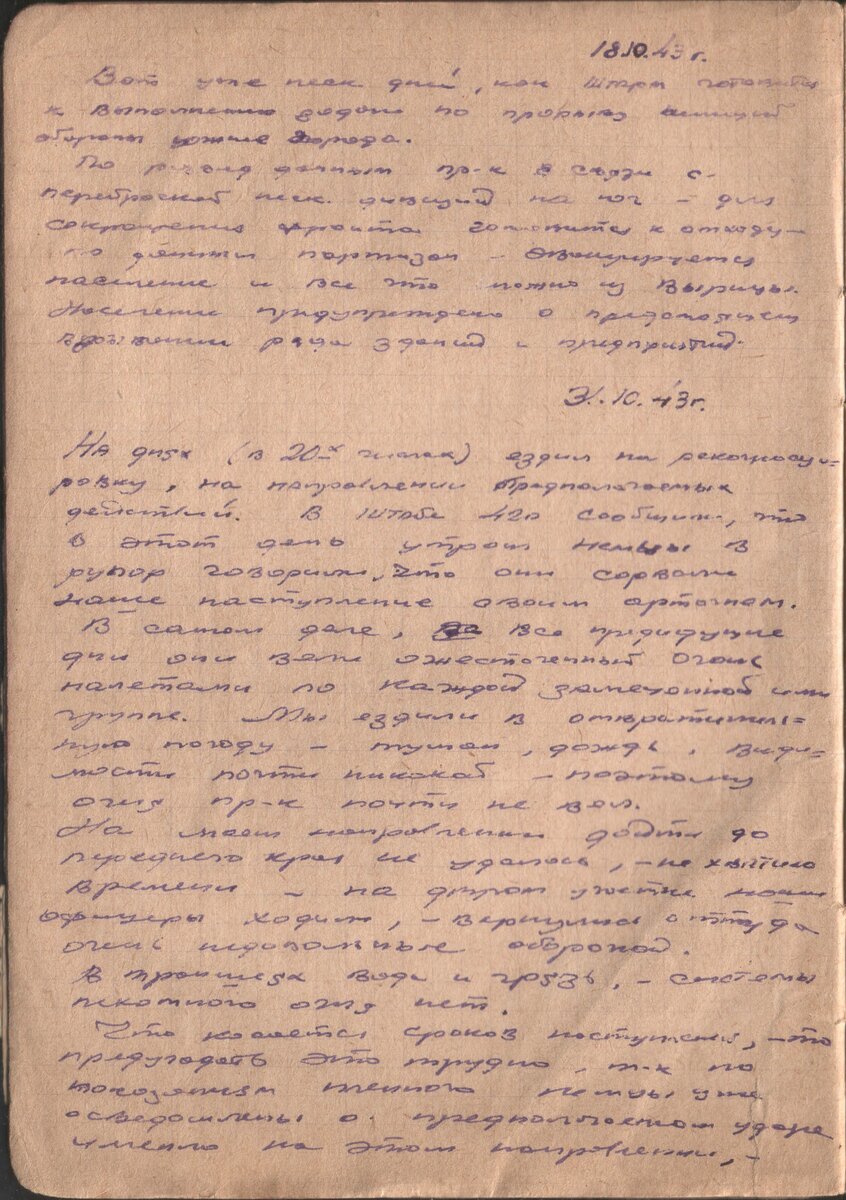 18.10.43 г.
Вот уже неск дней, как штарм готовится
к выполнению задачи по прорыву немецкой
обороны южнее города.
По развед данным пр-к в связи с
переброской неск. дивизий на юг – для
сокращения фронта готовится к отходу –
по данным партизан – эвакуируется
население и все что можно из Вырицы.
Население предупреждено о предстоящем
взрывании ряда зданий и предприятий.
31.10.43 г.
На днях (в 20х числах) ездил на рекогносци=
ровку, на направлении предполагаемых
действий. В штабе 42а сообщили, что
в этот день утром немцы в
рупор говорили, что они сорвали
наше наступление своим артогнем.
В самом деле, все предидущие
дни они вели ожесточенный огонь
налетами по каждой замеченной ими
группе. Мы ездили в отвратитель=
ную погоду – туман, дождь, види=
мости почти никакой – поэтому
огня пр-к почти не вел.
На моем направлении дойти до
переднего края не удалось, – не хватило
времени – на другом участке наши
офицеры ходили, – вернулись оттуда
очень недовольные обороной.
В траншеях вода и грязь, – системы
пехотного огня нет.
Что касается сроков наступления, – то
предугадать это трудно, т-к по
показаниям пленного немцы уже
осведомлены о предполагаемом ударе
именно на этом направлении, –